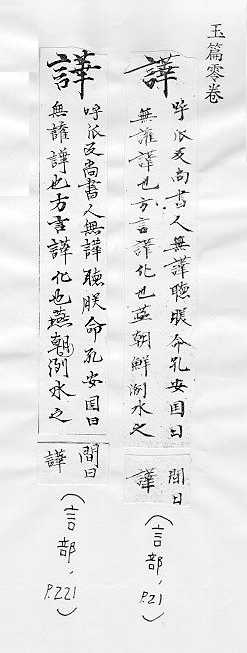 玉篇零卷
譁
呼瓜反尚書人無譁聽朕命孔安国曰
無讙譁也方言譁化也燕朝鮮洌水之
間曰
譁
(言部, P.21)
譁
呼瓜反尚書人無譁聽朕命孔安国曰
無讙譁也方言譁化也燕朝洌水之
間曰
譁
(言部, P.221)